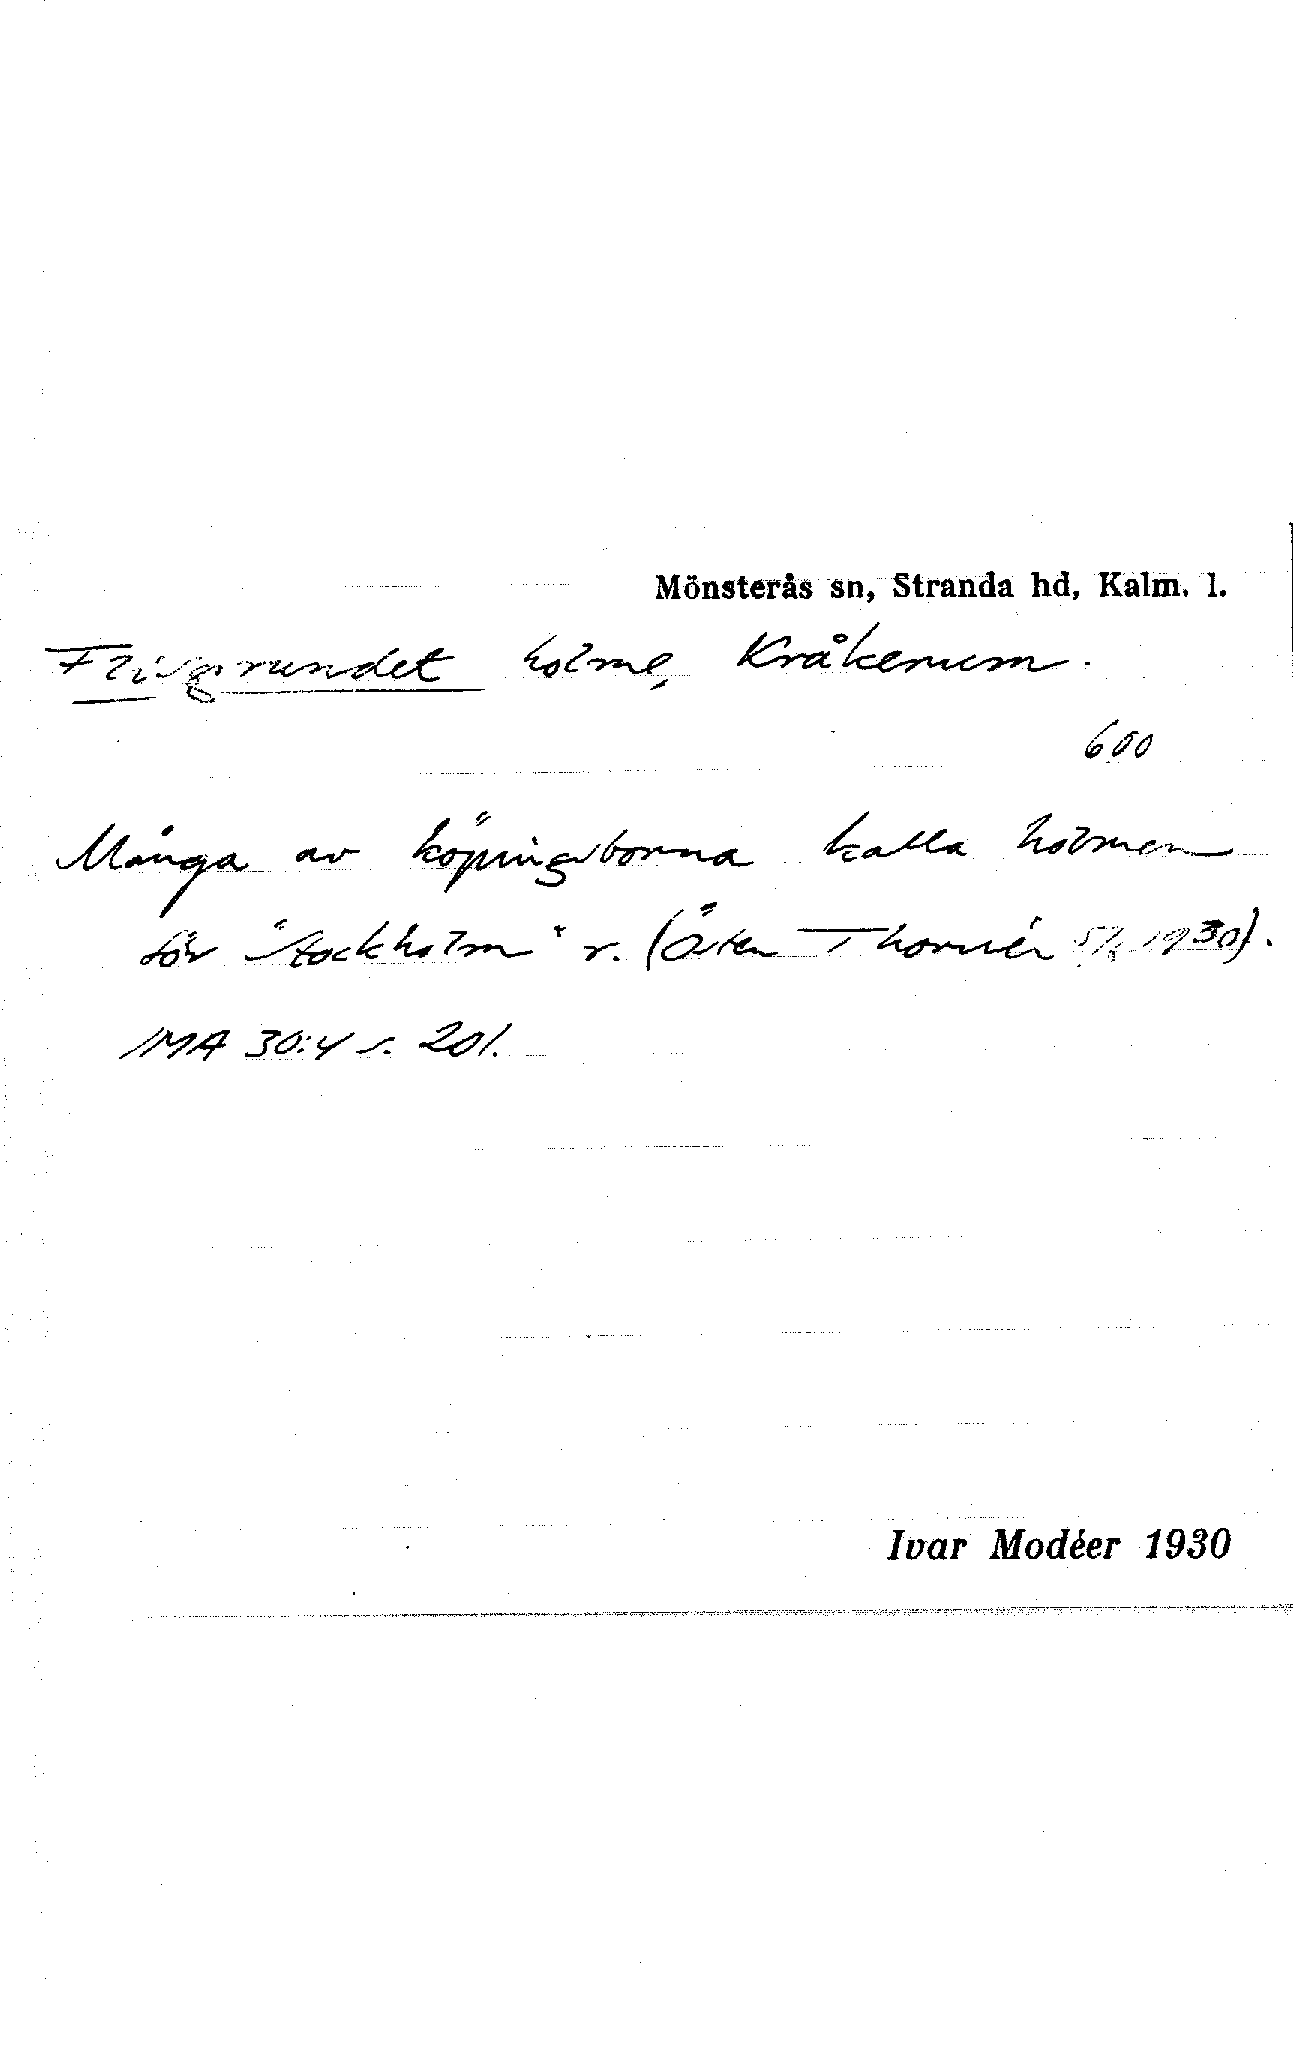 Mönsterås sn, Stranda hd, Kalm. l.
Flisgrundet holme, Kråkerum.
600
Många av köpingsborna kalla holmen
för "Stockholm" r. (Östen Thornér 1930).
IMA 30:4 s. 201.
Ivar Modéer 1930